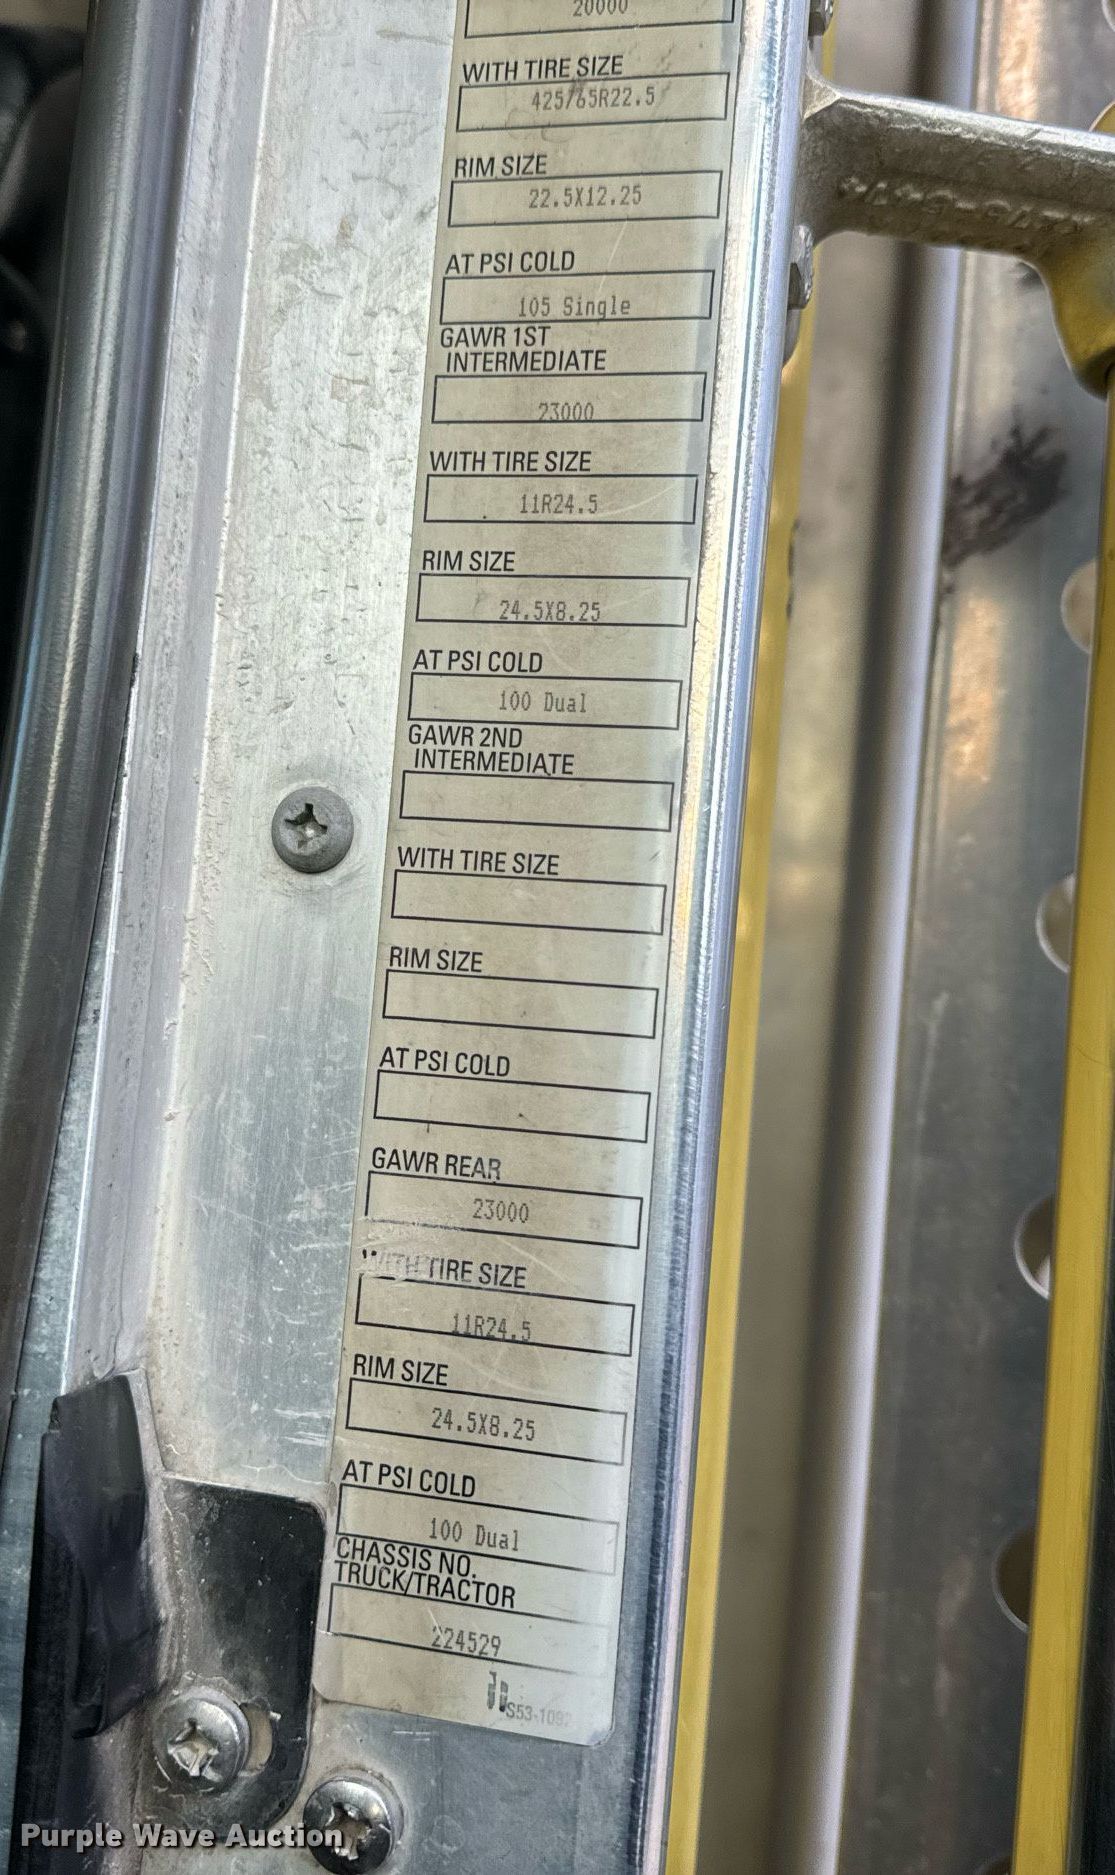 20000
WITH TIRE SIZE
425/65R22.5
RIM SIZE
22.5X12.25
AT PSI COLD
105 Single
GAWR 1ST
INTERMEDIATE
23000
WITH TIRE SIZE
11R24.5
RIM SIZE
24.5X8.25
AT PSI COLD
100 Dual
GAWR 2ND
INTERMEDIATE
WITH TIRE SIZE
RIM SIZE
AT PSI COLD
GAWR REAR
23000
WITH TIRE SIZE
11R24.5
RIM SIZE
24.5X8.25
AT PSI COLD
100 Dual
CHASSIS NO.
TRUCK/TRACTOR
224529
Purple Wave Auction